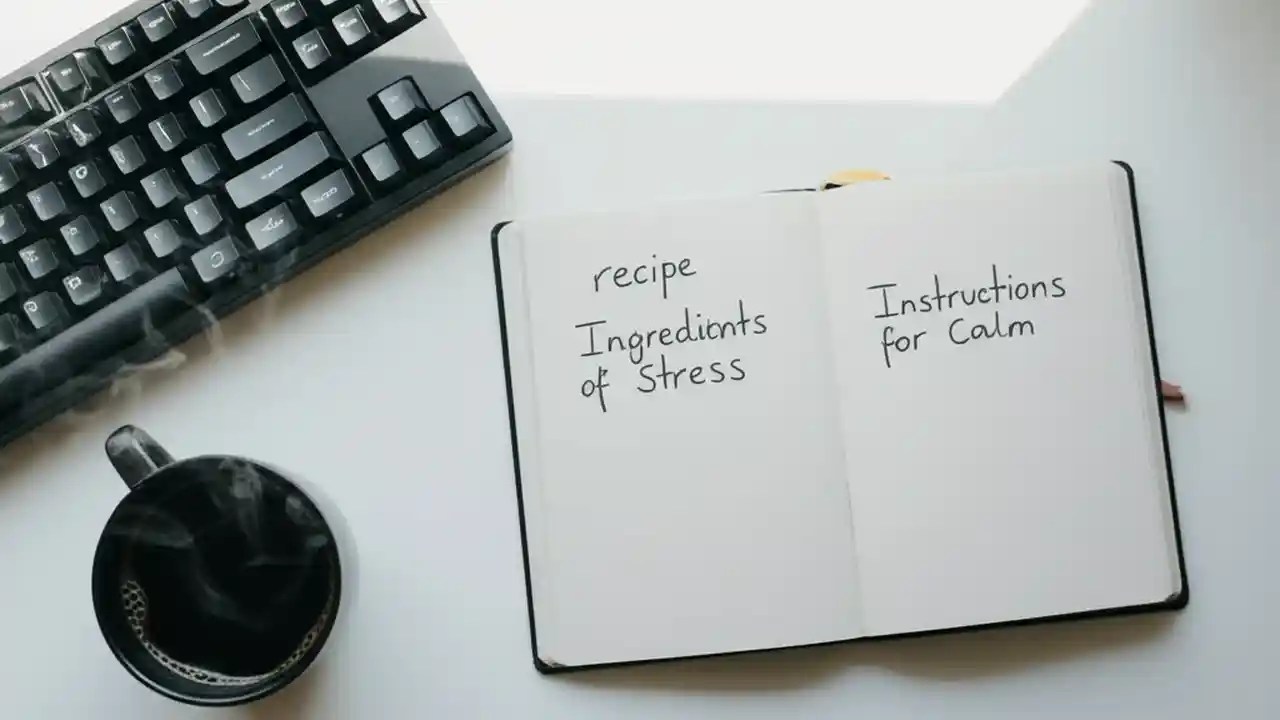 recipe
Ingredients
of Stress
Instructions
for Calm